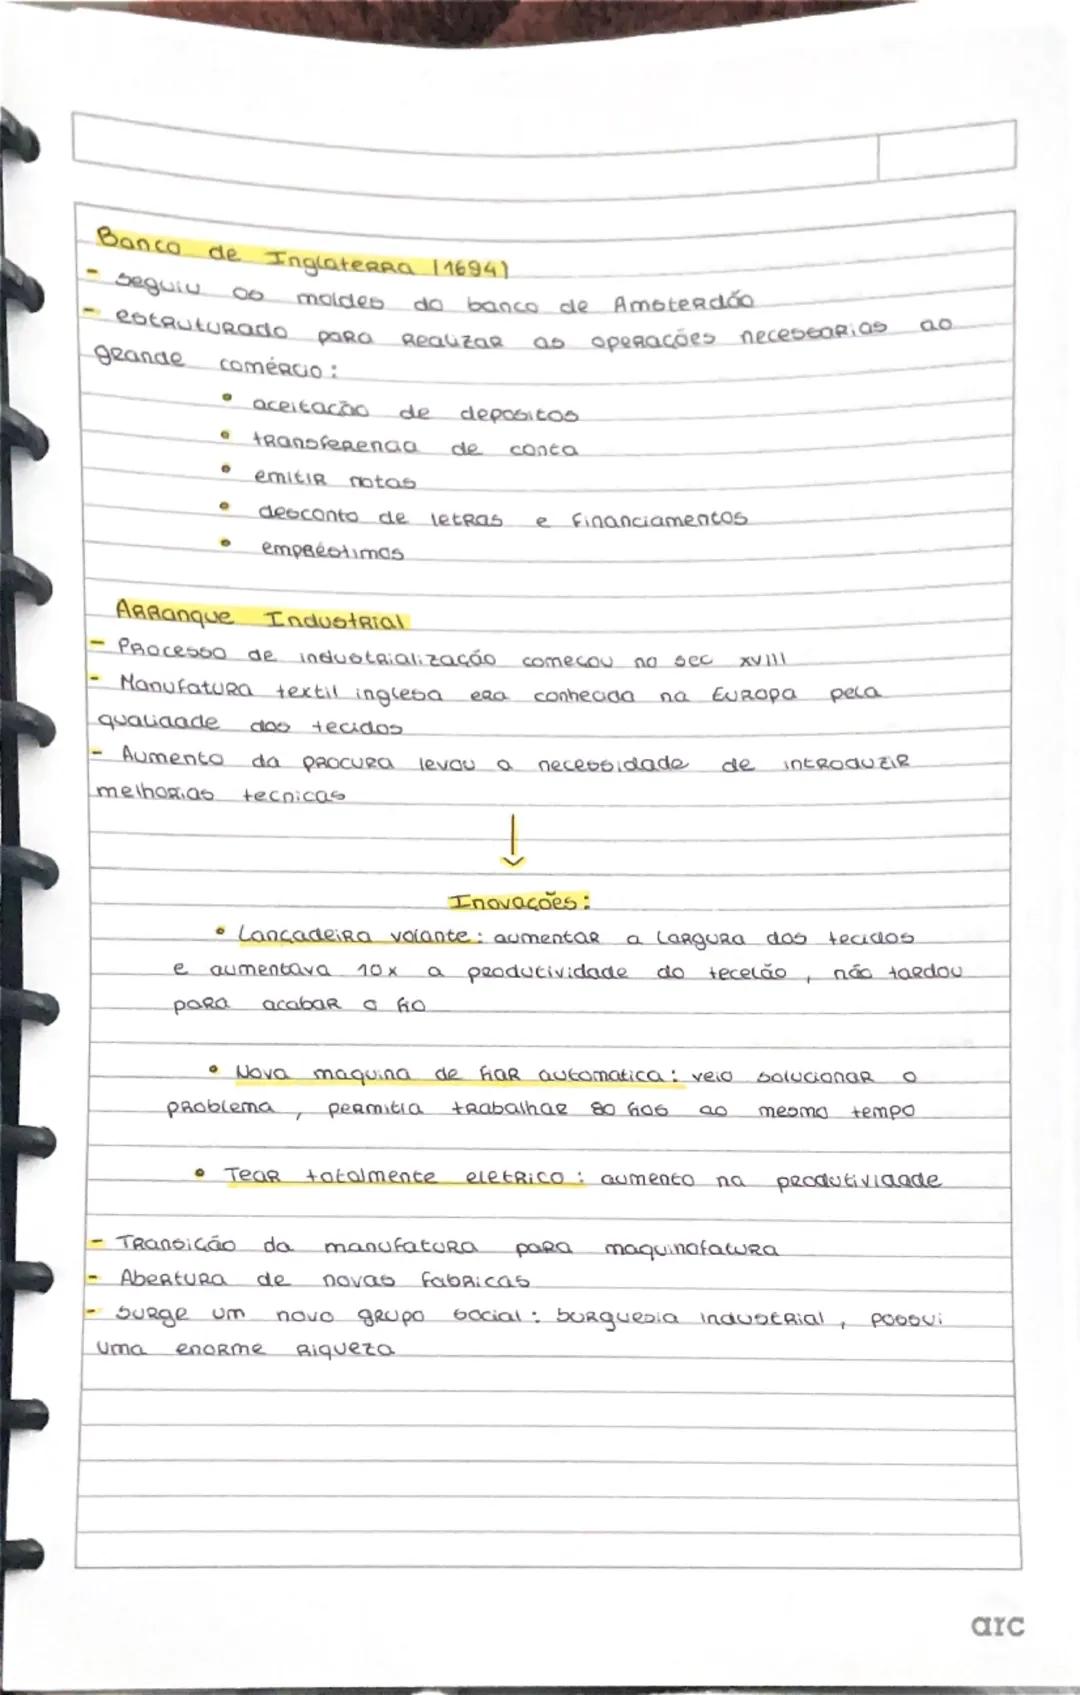 Banco de Inglaterra (1694)
- seguiu os moldes do banco de Amsterdão
- estruturado para realizar as operações necessarias ao
grande comércio:
• aceitação de depositos
• transferencia de conta
• emitir notas
• desconto de letras e financiamentos
• empréstimos
Arranque Industrial
- Processo de industrialização começou no sec XVIII
- Manufatura textil inglesa era conhecida na Europa pela
qualidade dos tecidos
- Aumento da procura levou a necessidade de introduzir
melhorias tecnicas
↓
Inovações:
• Lançadeira volante: aumentar a largura dos tecidos
e aumentava 10x a produtividade do tecelão, não tardou
para acabar o fio
• Nova maquina de fiar automatica: veio solucionar o
problema, permitia trabalhar 80 fios ao mesmo tempo
• Tear totalmente eletrico: aumento na produtividade
- Transição da manufatura para maquinofatura
- Abertura de novas fabricas
- surge um novo grupo social: burguesia industrial, possui
uma enorme riqueza
arc